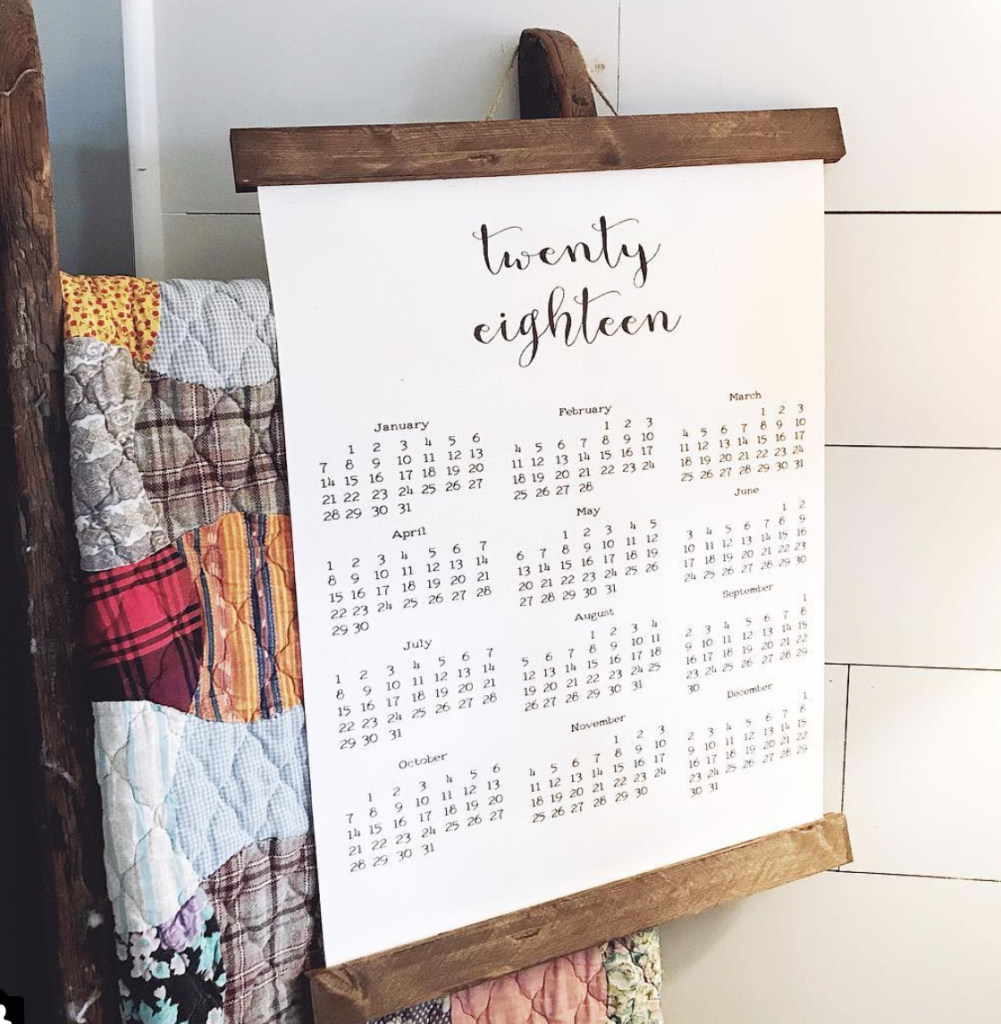 twenty
eighteen
January
1 2 3 4 5 6
7 8 9 10 11 12 13
14 15 16 17 18 19 20
21 22 23 24 25 26 27
28 29 30 31
February
1 2 3
4 5 6 7 8 9 10
11 12 13 14 15 16 17
18 19 20 21 22 23 24
25 26 27 28
March
1 2 3
4 5 6 7 8 9 10
11 12 13 14 15 16 17
18 19 20 21 22 23 24
25 26 27 28 29 30 31
April
1 2 3 4 5 6 7
8 9 10 11 12 13 14
15 16 17 18 19 20 21
22 23 24 25 26 27 28
29 30
May
1 2 3 4 5
6 7 8 9 10 11 12
13 14 15 16 17 18 19
20 21 22 23 24 25 26
27 28 29 30 31
June
1 2
3 4 5 6 7 8 9
10 11 12 13 14 15 16
17 18 19 20 21 22 23
24 25 26 27 28 29 30
July
1 2 3 4 5 6 7
8 9 10 11 12 13 14
15 16 17 18 19 20 21
22 23 24 25 26 27 28
29 30 31
August
1 2 3 4
5 6 7 8 9 10 11
12 13 14 15 16 17 18
19 20 21 22 23 24 25
26 27 28 29 30 31
September
1
2 3 4 5 6 7 8
9 10 11 12 13 14 15
16 17 18 19 20 21 22
23 24 25 26 27 28 29
30
October
1 2 3 4 5 6
7 8 9 10 11 12 13
14 15 16 17 18 19 20
21 22 23 24 25 26 27
28 29 30 31
November
1 2 3
4 5 6 7 8 9 10
11 12 13 14 15 16 17
18 19 20 21 22 23 24
25 26 27 28 29 30
December
1
2 3 4 5 6 7 8
9 10 11 12 13 14 15
16 17 18 19 20 21 22
23 24 25 26 27 28 29
30 31